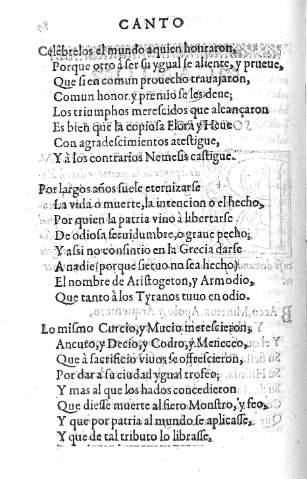 CANTO
Célebrelos el mundo aquien honraron,
Porque otro à ser su ygual se aliente, y prueue,
Que si en comun prouecho trauajaron,
Comun honor y premio se les deue;
Los triumphos merescidos que alcançaron
Es bien que la copiosa Flora y Heue
Con agradescimientos atestigue,
Y à los contrarios Nemesis castigue.
Por largos años suele eternizarse
La vida ò muerte, la intencion o el hecho,
Por quien la patria vino à libertarse
De odiosa seruidumbre, o graue pecho;
Y assi no consintio en la Grecia darse
A nadie (porque sieruo no sea hecho)
El nombre de Aristogeton, y Armodio,
Que tanto à los Tyranos tuuo en odio.
Lo mismo Curcio, y Mucio merescieron,
Ancuro, y Decio, y Codro, y Meneceo,
Que à sacrificio viuos se offrescieron,
Por dar a su ciudad ygual trofeo;
Y mas al que los hados concedieron
Que diesse muerte al fiero Monstro, y feo,
Y que por patria al mundo se aplicasse,
Y que de tal tributo lo librasse,